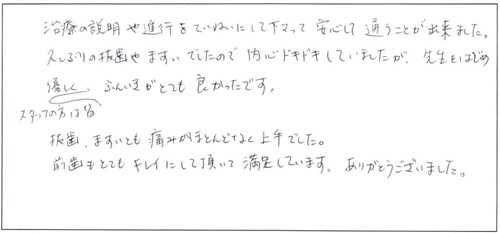 治療の説明や進行をていねいにして下さって安心して通うことが出来ました。
久しぶりの抜歯やますいでしたので内心ドキドキしていましたが、先生をはじめ
優しく、ふんいきがとても良かったです。
スタッフの方は皆
抜歯、ますいとも痛みがほとんどなく上手でした。
前歯もとてもキレイにして頂いて満足しています。ありがとうございました。